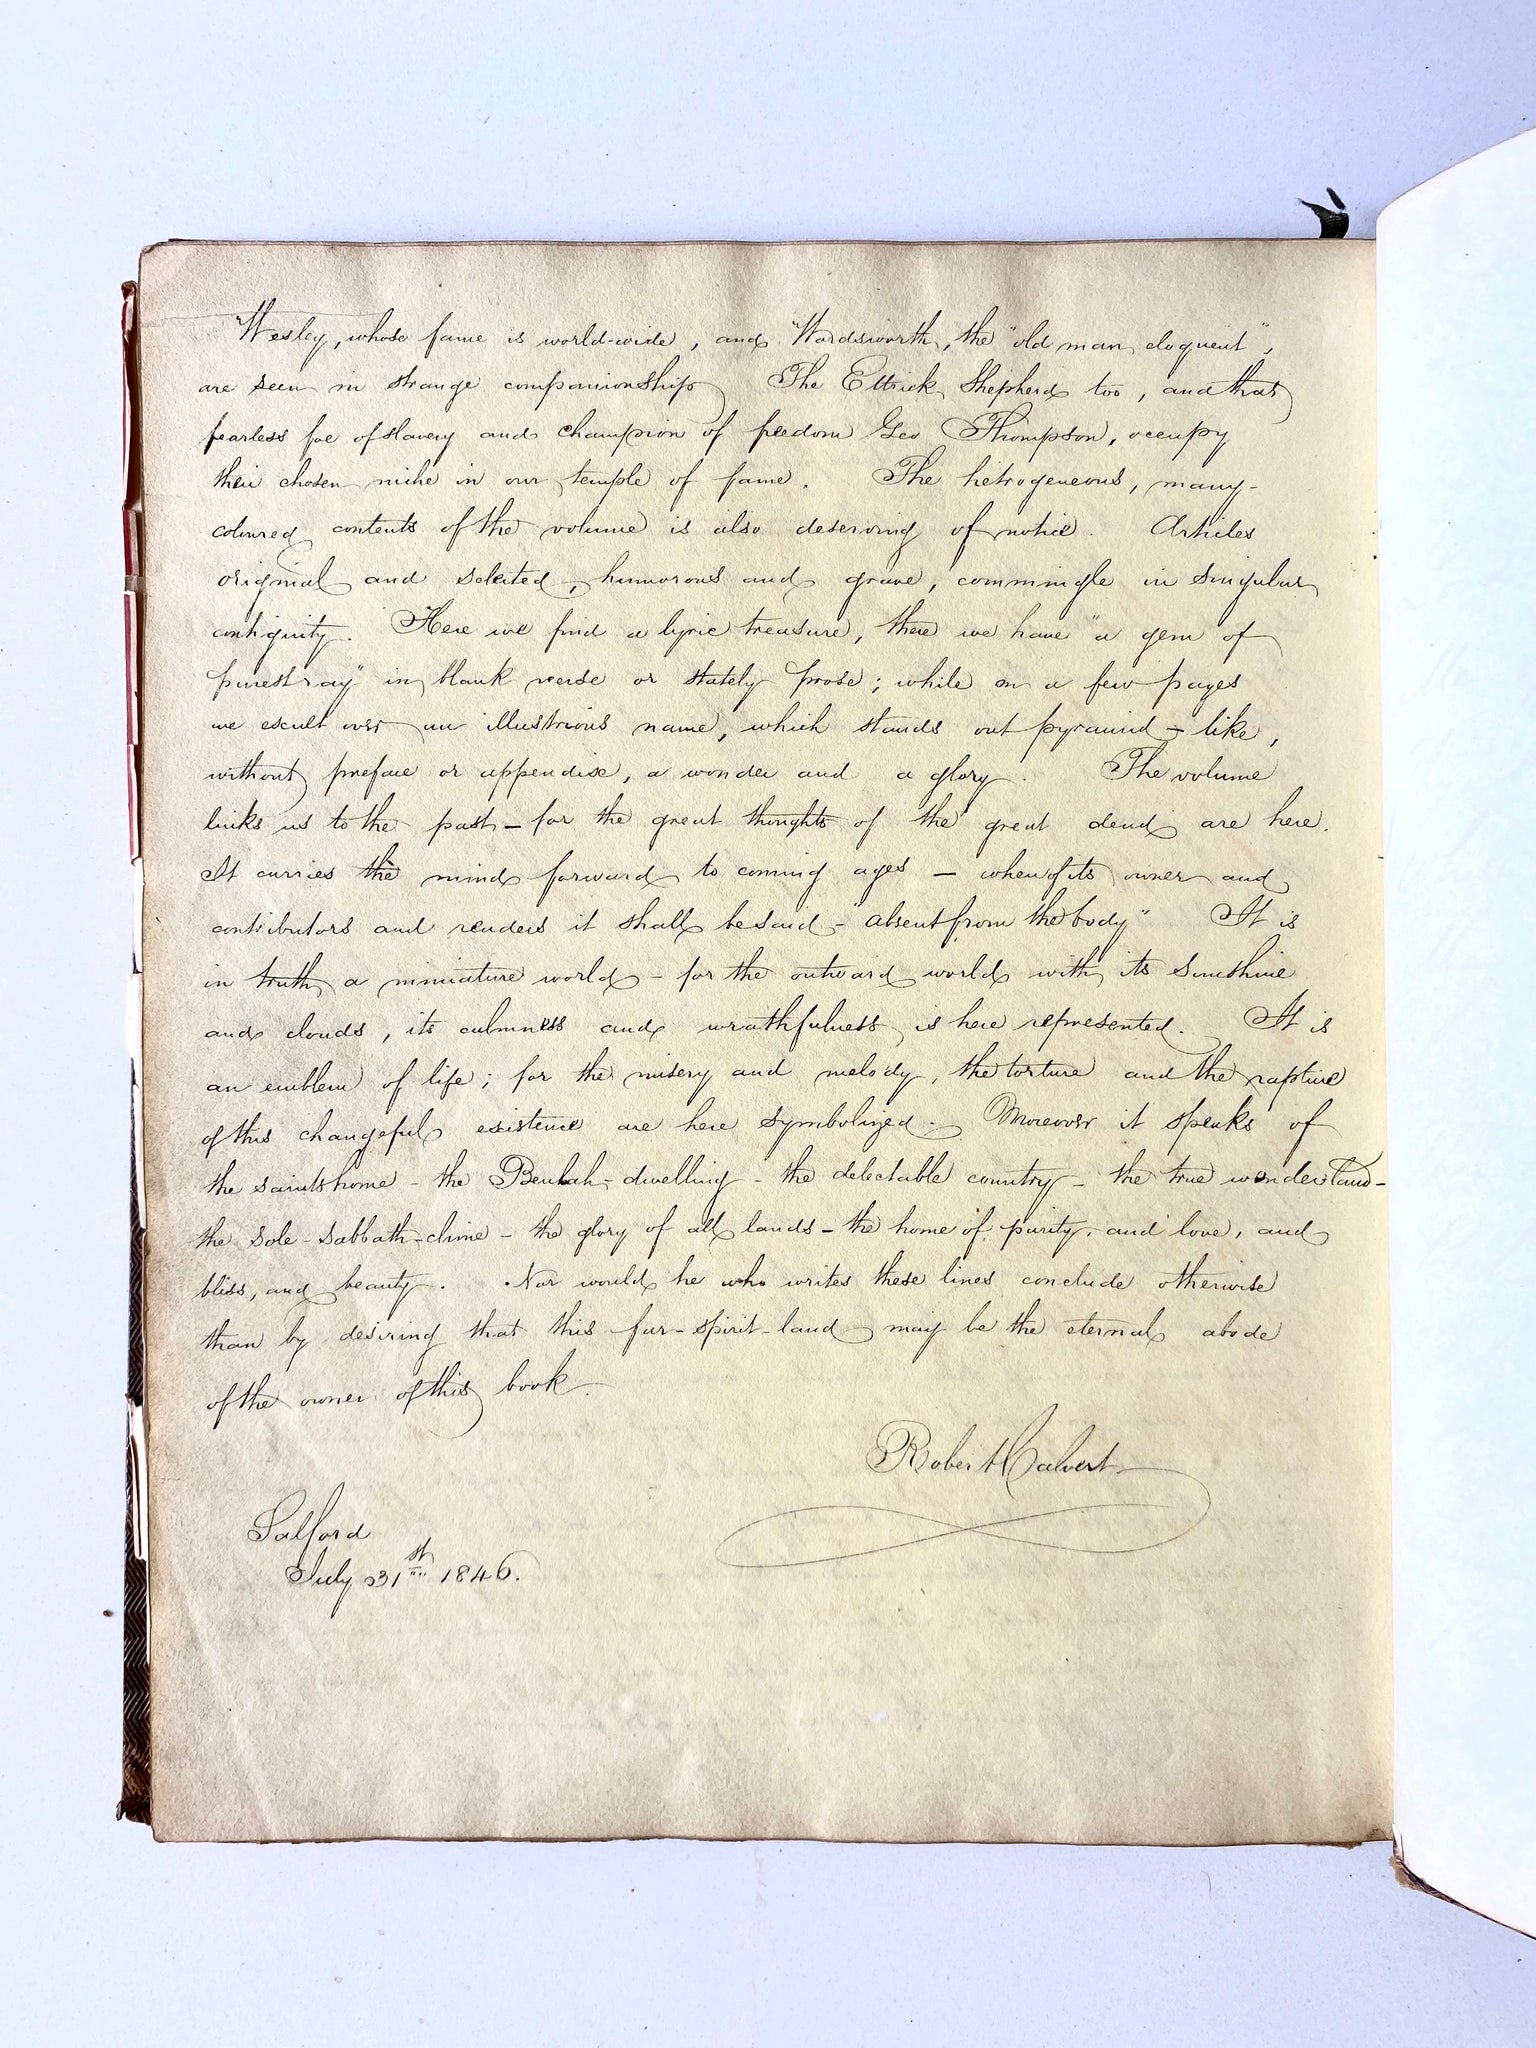 Wesley, whose fame is world-wide, and Wordsworth, the "old man eloquent",
are seen in strange companionship The Ettrick Shepherd too, and that
fearless foe of slavery and champion of freedom Geo Thompson, occupy
their chosen niche in our temple of fame. The hetrogeneous, many-
coloured contents of the volume is also deserving of notice. Articles
original and selected, humorous and grave, commingle in singular
contiguity. Here we find a lyric treasure, there we have "a gem of
purest ray" in blank verse or stately prose; while on a few pages
we exult over an illustrious name, which stands out pyramid-like,
without preface or appendix, a wonder and a glory. The volume
links us to the past - for the great thoughts of the great dead are here.
It carries the mind forward to coming ages - when of its owner and
contributors and readers it shall be said - "absent from the body" It is
in truth a miniature world - for the outward world with its sunshine
and clouds, its calmness and wrathfulness is here represented. It is
an emblem of life; for the misery and melody, the torture and the rapture
of this changeful existence are here symbolized. Moreover it speaks of
the saints home - the Beulah-dwelling - the delectable country - the true wonderland -
the sole-sabbath-clime - the glory of all lands - the home of purity, and love, and
bliss, and beauty. Nor would he who writes these lines conclude otherwise
than by desiring that this far-spirit-land may be the eternal abode
of the owner of this book.
Robert Calvert
Salford
July 31st 1846.